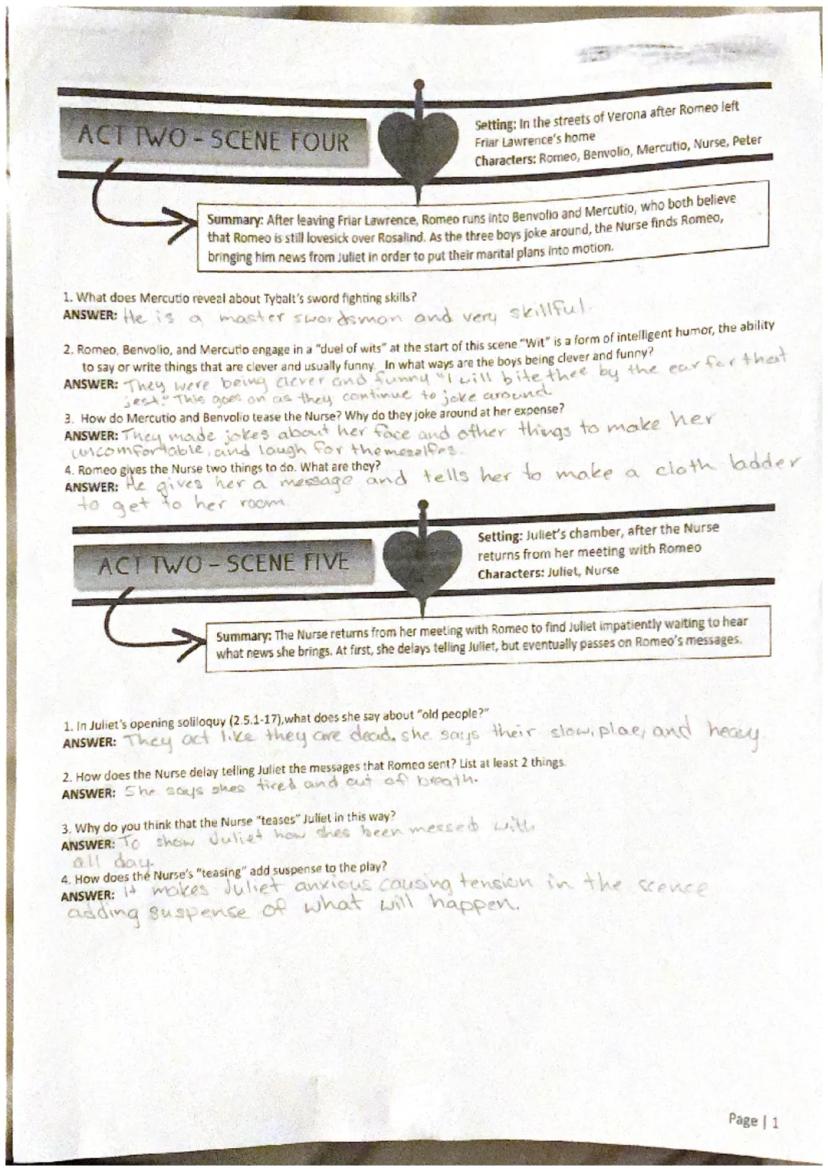 ACT TWO – SCENE FOUR
Setting: In the streets of Verona after Romeo left
Friar Lawrence's home
Characters: Romeo, Benvolio, Mercutio, Nurse, Peter
Summary: After leaving Friar Lawrence, Romeo runs into Benvolio and Mercutio, who both believe
that Romeo is still lovesick over Rosalind. As the three boys joke around, the Nurse finds Romeo,
bringing him news from Juliet in order to put their marital plans into motion.
1. What does Mercutio reveal about Tybalt's sword fighting skills?
ANSWER: He is a master swordsman and very skillful.
2. Romeo, Benvolio, and Mercutio engage in a "duel of wits" at the start of this scene "Wit" is a form of intelligent humor, the ability
to say or write things that are clever and usually funny. In what ways are the boys being clever and funny?
ANSWER: They were being clever and funny "I will bite thee by the ear for that
jest." This goes on as they continue to joke around.
3. How do Mercutio and Benvolio tease the Nurse? Why do they joke around at her expense?
ANSWER: They made jokes about her face and other things to make her
uncomfortable, and laugh for themselfes.
4. Romeo gives the Nurse two things to do. What are they?
ANSWER: He gives her a message and tells her to make a cloth ladder
to get to her room.
ACT TWO – SCENE FIVE
Setting: Juliet's chamber, after the Nurse
returns from her meeting with Romeo
Characters: Juliet, Nurse
Summary: The Nurse returns from her meeting with Romeo to find Juliet impatiently waiting to hear
what news she brings. At first, she delays telling Juliet, but eventually passes on Romeo's messages.
1. In Juliet's opening soliloquy (2.5.1-17),what does she say about "old people?"
ANSWER: They act like they are dead, she says their slow, plae, and heavy.
2. How does the Nurse delay telling Juliet the messages that Romeo sent? List at least 2 things.
ANSWER: She says shes tired and out of breath.
3. Why do you think that the Nurse "teases" Juliet in this way?
ANSWER: To show Juliet how shes been messed with
all day.
4. How does the Nurse's "teasing" add suspense to the play?
ANSWER: it makes Juliet anxious causing tension in the scence
adding suspense of what will happen.
Page | 1